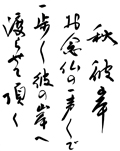 秋彼岸
お念仏の一声で
一歩一歩彼の岸へ
渡らせて頂く